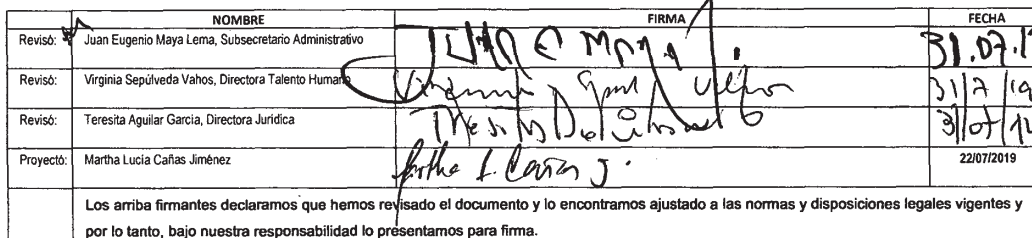 NOMBRE FIRMA FECHA
Revisó: Juan Eugenio Maya Lema, Subsecretario Administrativo Juan E Maya L. 31.07.19
Revisó: Virginia Sepúlveda Vahos, Directora Talento Humano 31/7/19
Revisó: Teresita Aguilar Garcia, Directora Jurídica 31/07/19
Proyectó: Martha Lucía Cañas Jiménez Martha L. Cañas J. 22/07/2019
Los arriba firmantes declaramos que hemos revisado el documento y lo encontramos ajustado a las normas y disposiciones legales vigentes y
por lo tanto, bajo nuestra responsabilidad lo presentamos para firma.